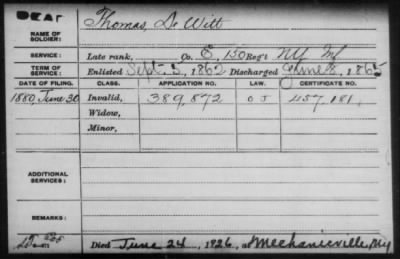 DEAF
NAME OF SOLDIER: Thomas, De Witt
SERVICE: Late rank, Co. E, 150 Reg't NY Inf
TERM OF SERVICE: Enlisted Sept. 5, 1862 Discharged June 8, 1865
DATE OF FILING. CLASS. APPLICATION NO. LAW. CERTIFICATE NO.
1880 June 30 Invalid, 389,872 457,181,
Widow,
Minor,
ADDITIONAL SERVICES:
REMARKS:
Died June 24, 1926, at Mechanicville, NY